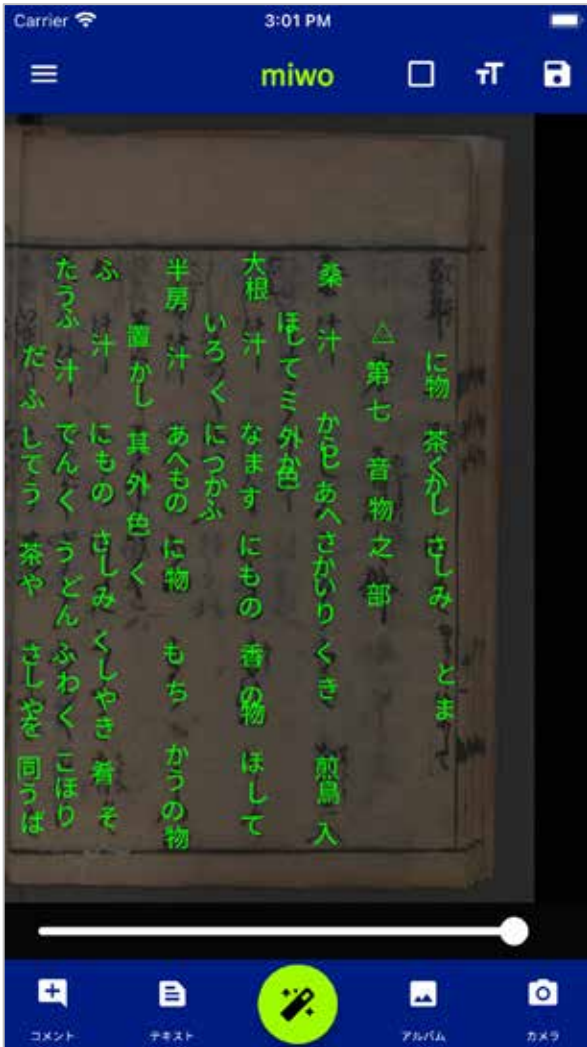 Carrier 3:01 PM
miwo
に物 茶くかし さしみ とま
△第七 音物之部
桑 汁 からしあへ さかいり くき 煎鳥 入
ほしてミ外か色
大根 汁 なます にもの 香の物 ほして
いろく につかふ
半房 汁 あへもの に物 もち かうの物
置かし 其外色く
ふ 汁 にもの さしみ くしやき 肴そ
たうふ 汁 でんく うどん ふわく こほり
だふしてう 茶や さしやを 同うば
コメント
テキスト
アルバム
カメラ